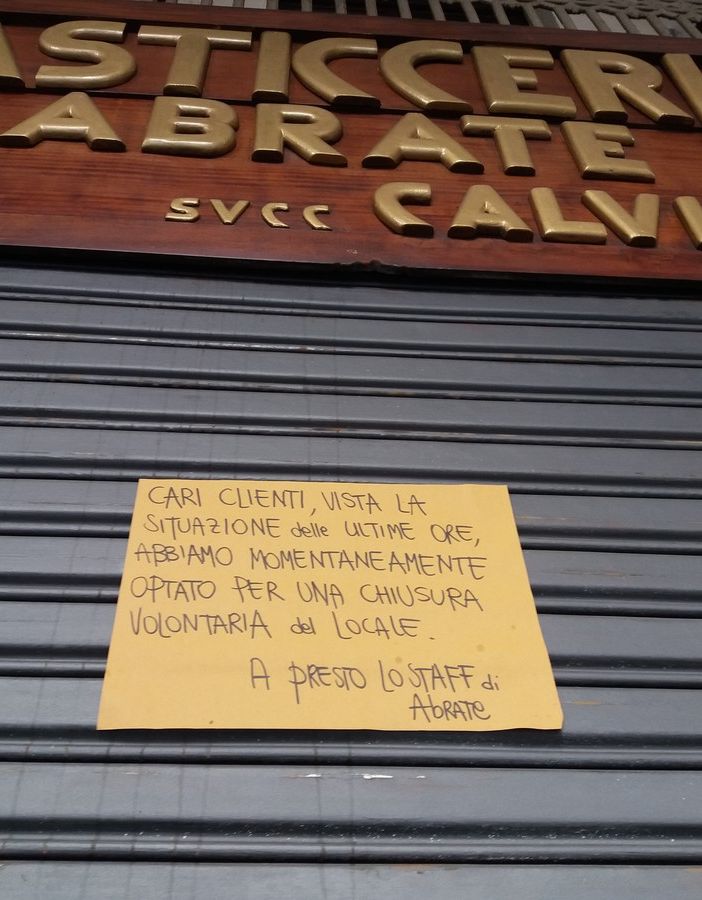 ASTICCERI
ABRATE
SVCC CALVI
CARI CLIENTI, VISTA LA
SITUAZIONE delle ULTIME ORE,
ABBIAMO MOMENTANEAMENTE
OPTATO PER UNA CHIUSURA
VOLONTARIA del LOCALE.
A PRESTO LO STAFF di
AbRATE